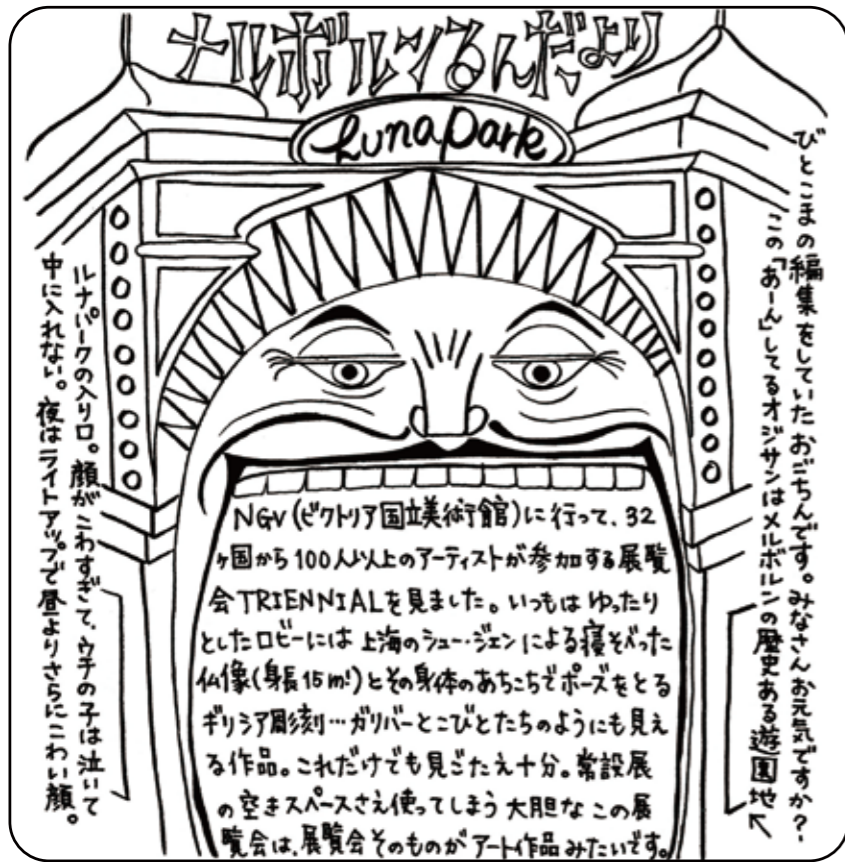 メルボルンるんだより
Luna Park
びとこまの編集をしていたおごちんです。みなさんお元気ですか?
この「あーん」してるオジサンはメルボルンの歴史ある遊園地
ルナパークの入り口。顔がこわすぎて、ウチの子は泣いて
中に入れない。夜はライトアップで昼よりさらにこわい顔。
NGV(ビクトリア国立美術館)に行って、32
ヶ国から100人以上のアーティストが参加する展覧
会TRIENNIALを見ました。いつもはゆったり
としたロビーには上海のシュー・ジェンによる寝そべった
仏像(身長15m!)とその身体のあちこちでポーズをとる
ギリシア彫刻…ガリバーとこびとたちのようにも見え
る作品。これだけでも見ごたえ十分。常設展
の空きスペースさえ使ってしまう大胆なこの展
覧会は、展覧会そのものがアート作品みたいです。